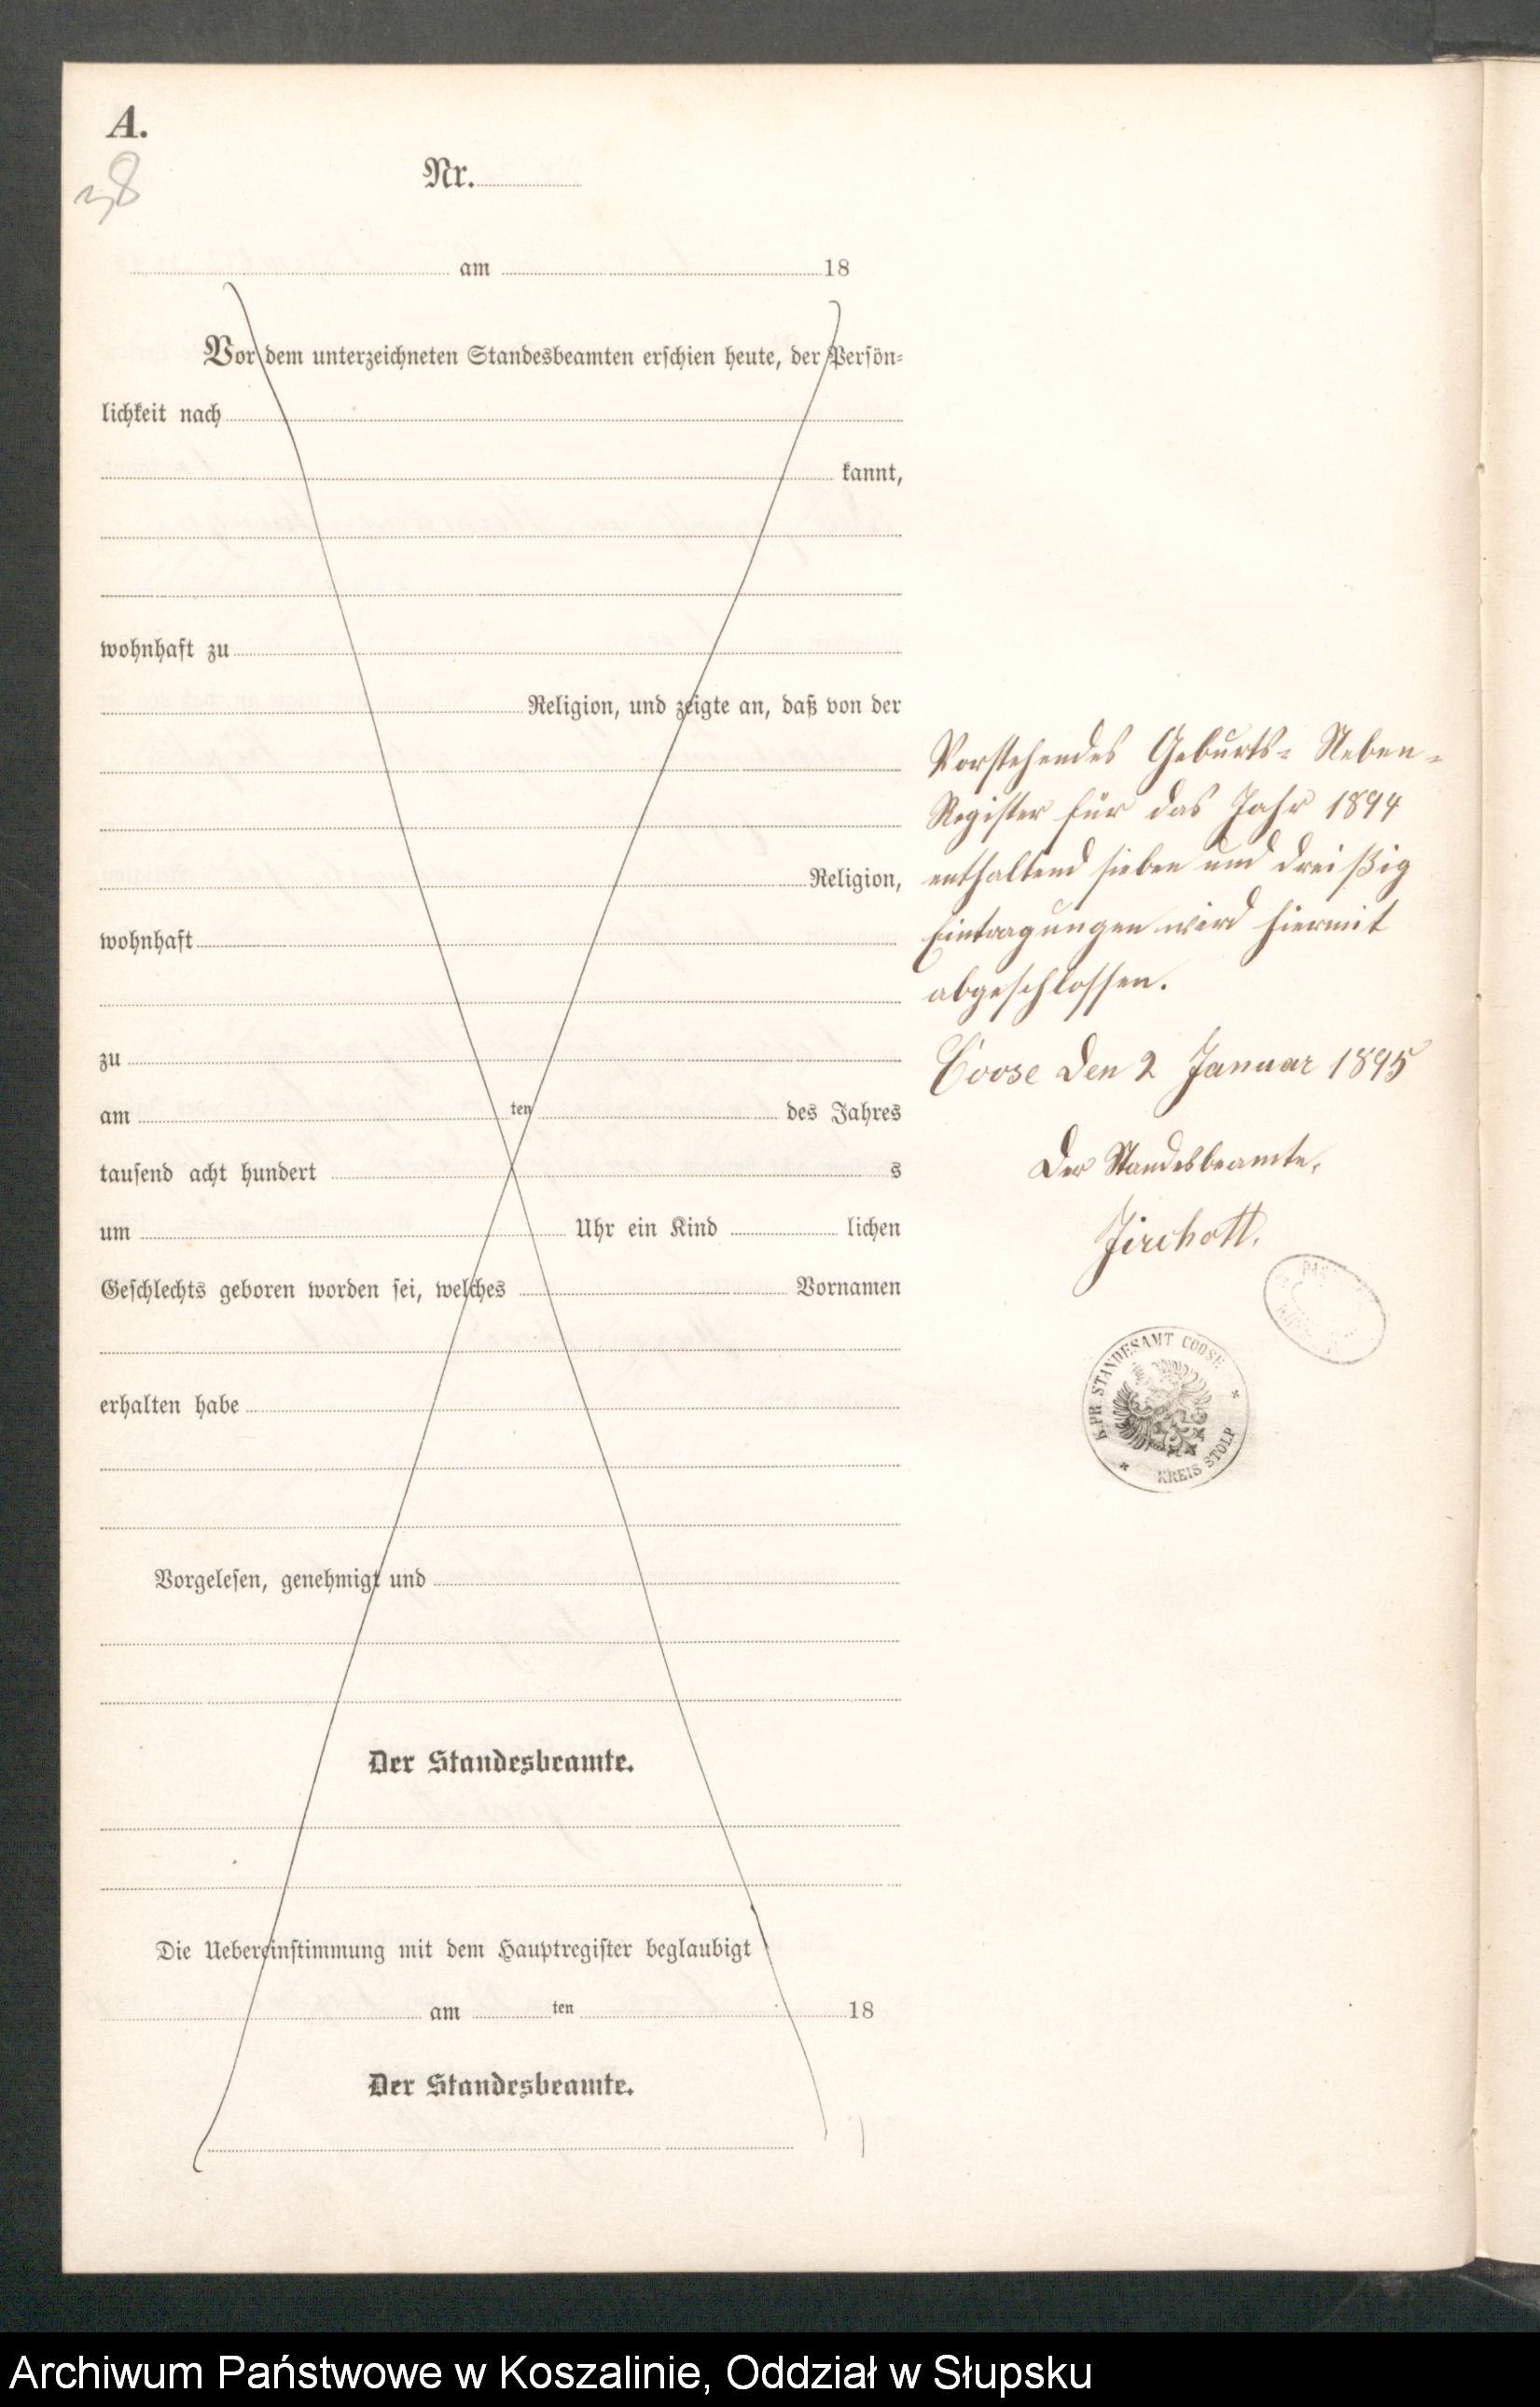 A.
38
Nr.
am 18
Vor dem unterzeichneten Standesbeamten erschien heute, der Persön-
lichkeit nach
kannt,
wohnhaft zu
Religion, und zeigte an, daß von der
Religion,
wohnhaft
zu
am ten des Jahres
tausend acht hundert s
um Uhr ein Kind lichen
Geschlechts geboren worden sei, welches Vornamen
erhalten habe
Vorgelesen, genehmigt und
Der Standesbeamte.
Die Uebereinstimmung mit dem Hauptregister beglaubigt
am ten 18
Der Standesbeamte.
Vorstehendes Geburts-Neben-
Register für das Jahr 1894
enthaltend sieben und dreißig
Eintragungen wird hiermit
abgeschlossen.
Coose den 2 Januar 1895
Der Standesbeamte,
K. PR. STANDESAMT COOSE
KREIS STOLP
Archiwum Państwowe w Koszalinie, Oddział w Słupsku